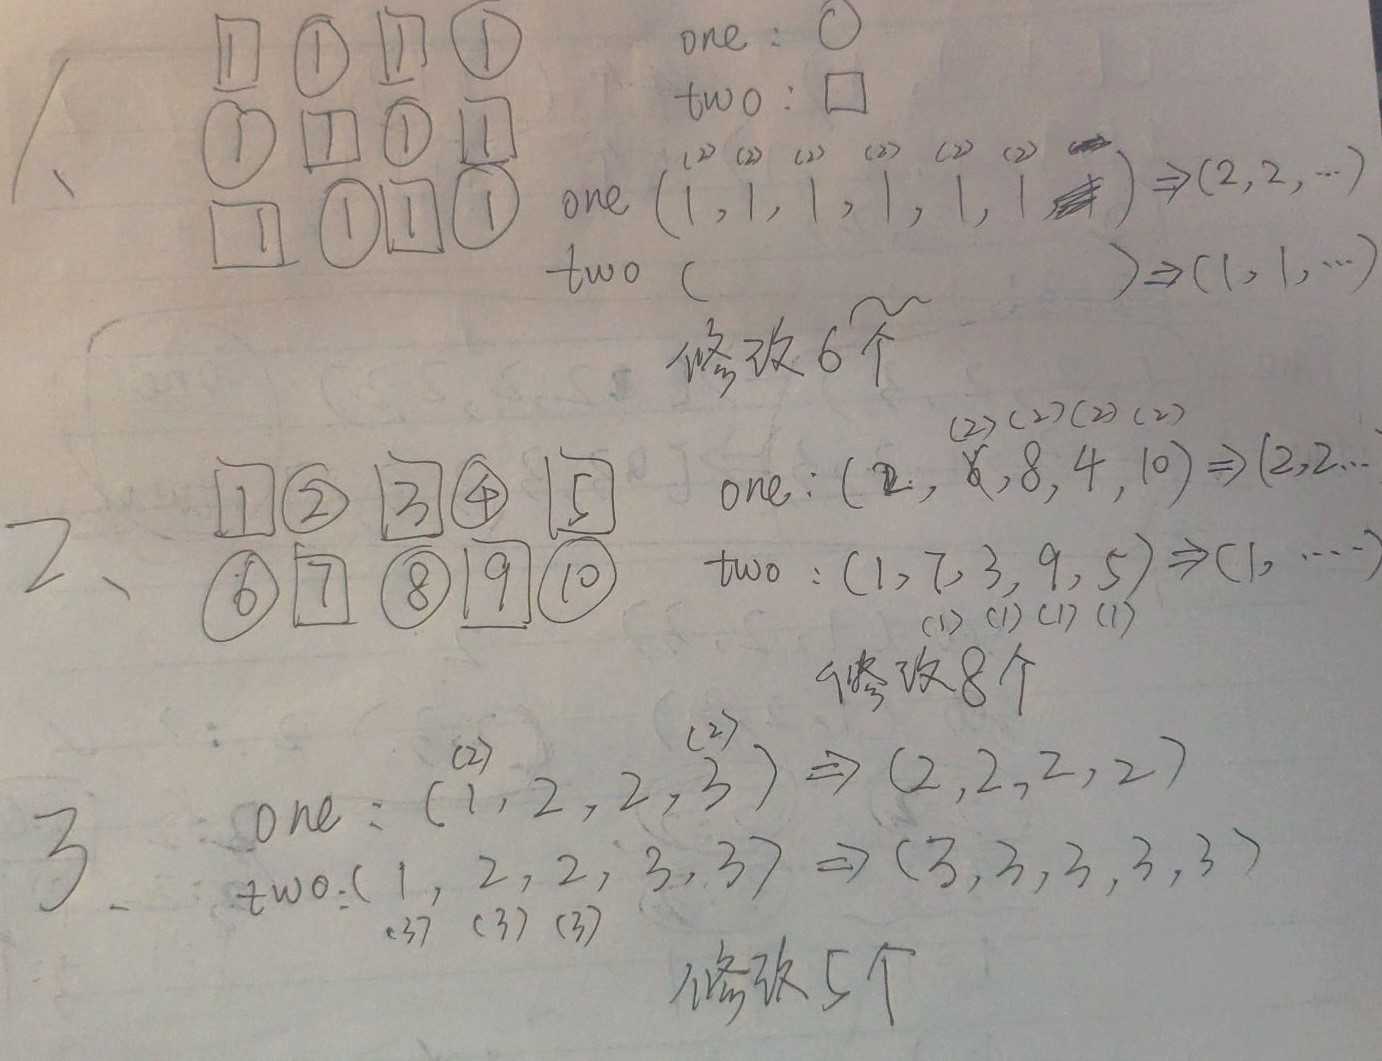 1、
1 1 1 1
one : ○
1 1 1 1
two : □
1 1 1 1
(2) (2) (2) (2) (2) (2)
one (1, 1, 1, 1, 1, 1) ⇒ (2, 2, ...)
two ( ) ⇒ (1, 1, ...)
修改6个
2、
1 2 3 4 5
6 7 8 9 10
(2) (2) (2) (2)
one : (2, 6, 8, 4, 10) ⇒ (2, 2...
two : (1, 7, 3, 9, 5) ⇒ (1, ....)
(1) (1) (1) (1)
修改8个
3.
(2) (2)
one : (1, 2, 2, 3) ⇒ (2, 2, 2, 2)
two : (1, 2, 2, 3, 3) ⇒ (3, 3, 3, 3, 3)
(3) (3) (3)
修改5个